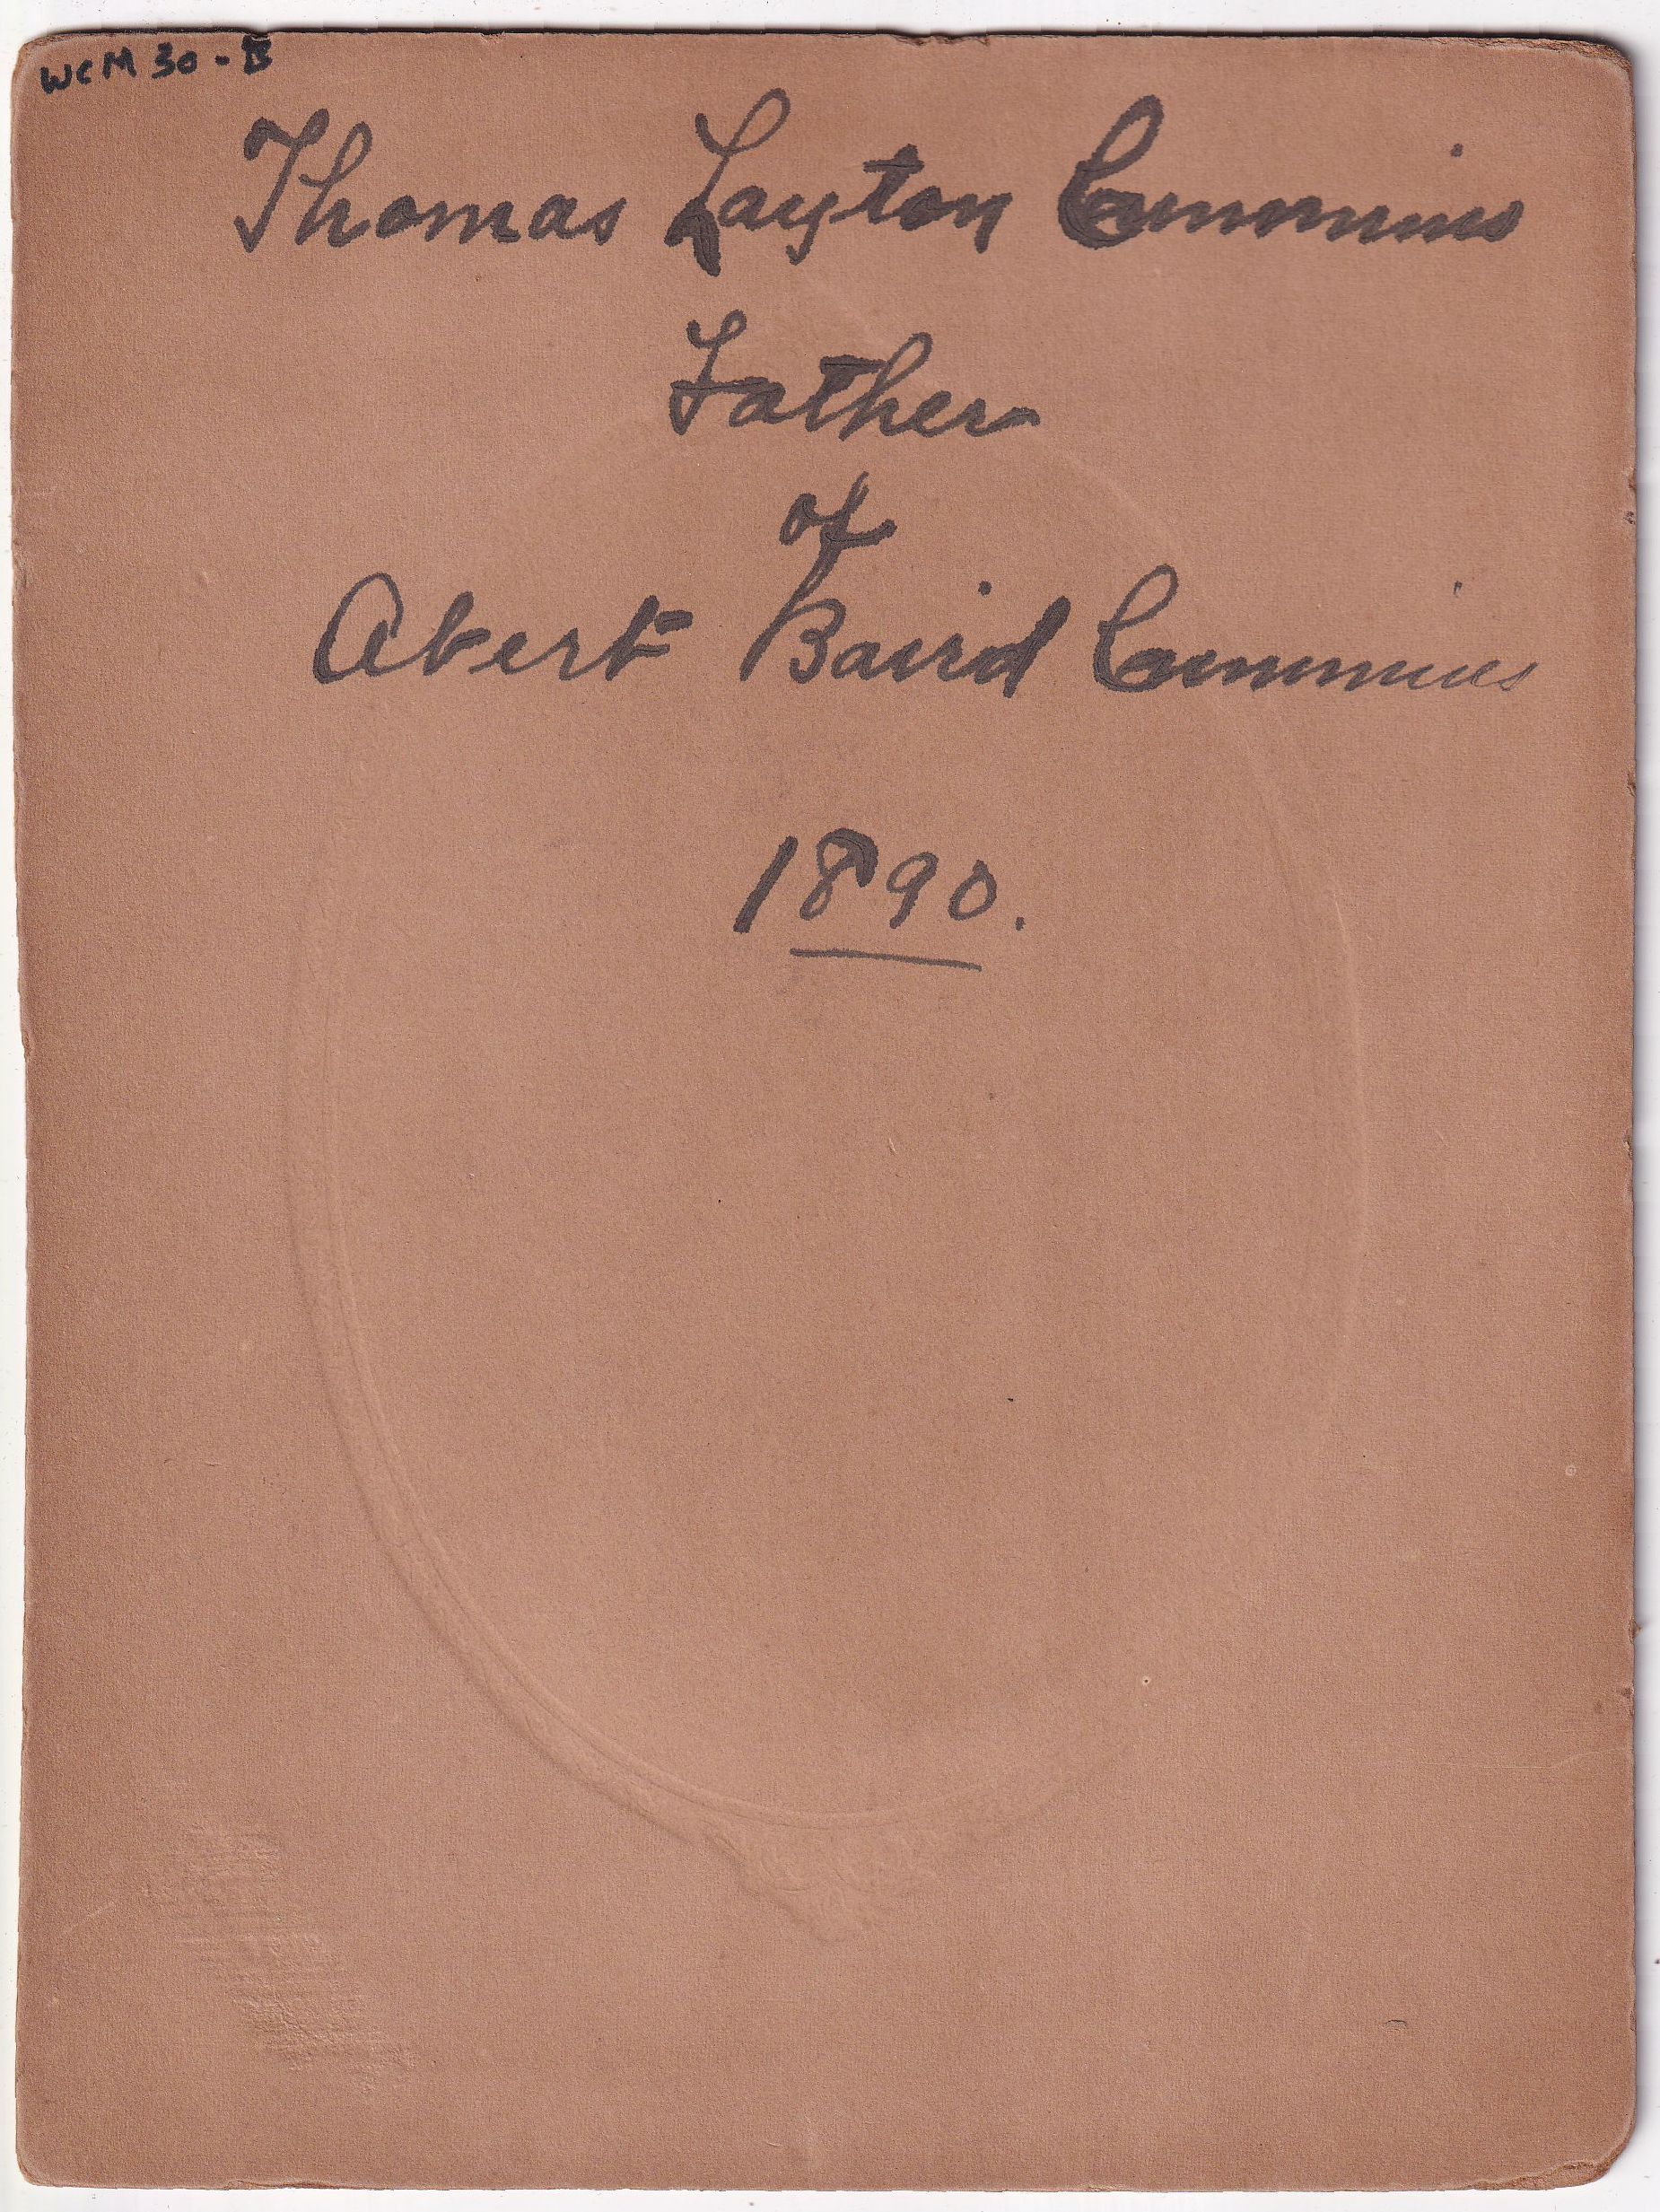 WCM 30-B
Thomas Layton Cummins
Father
of
Abert Baird Cummins
1890.